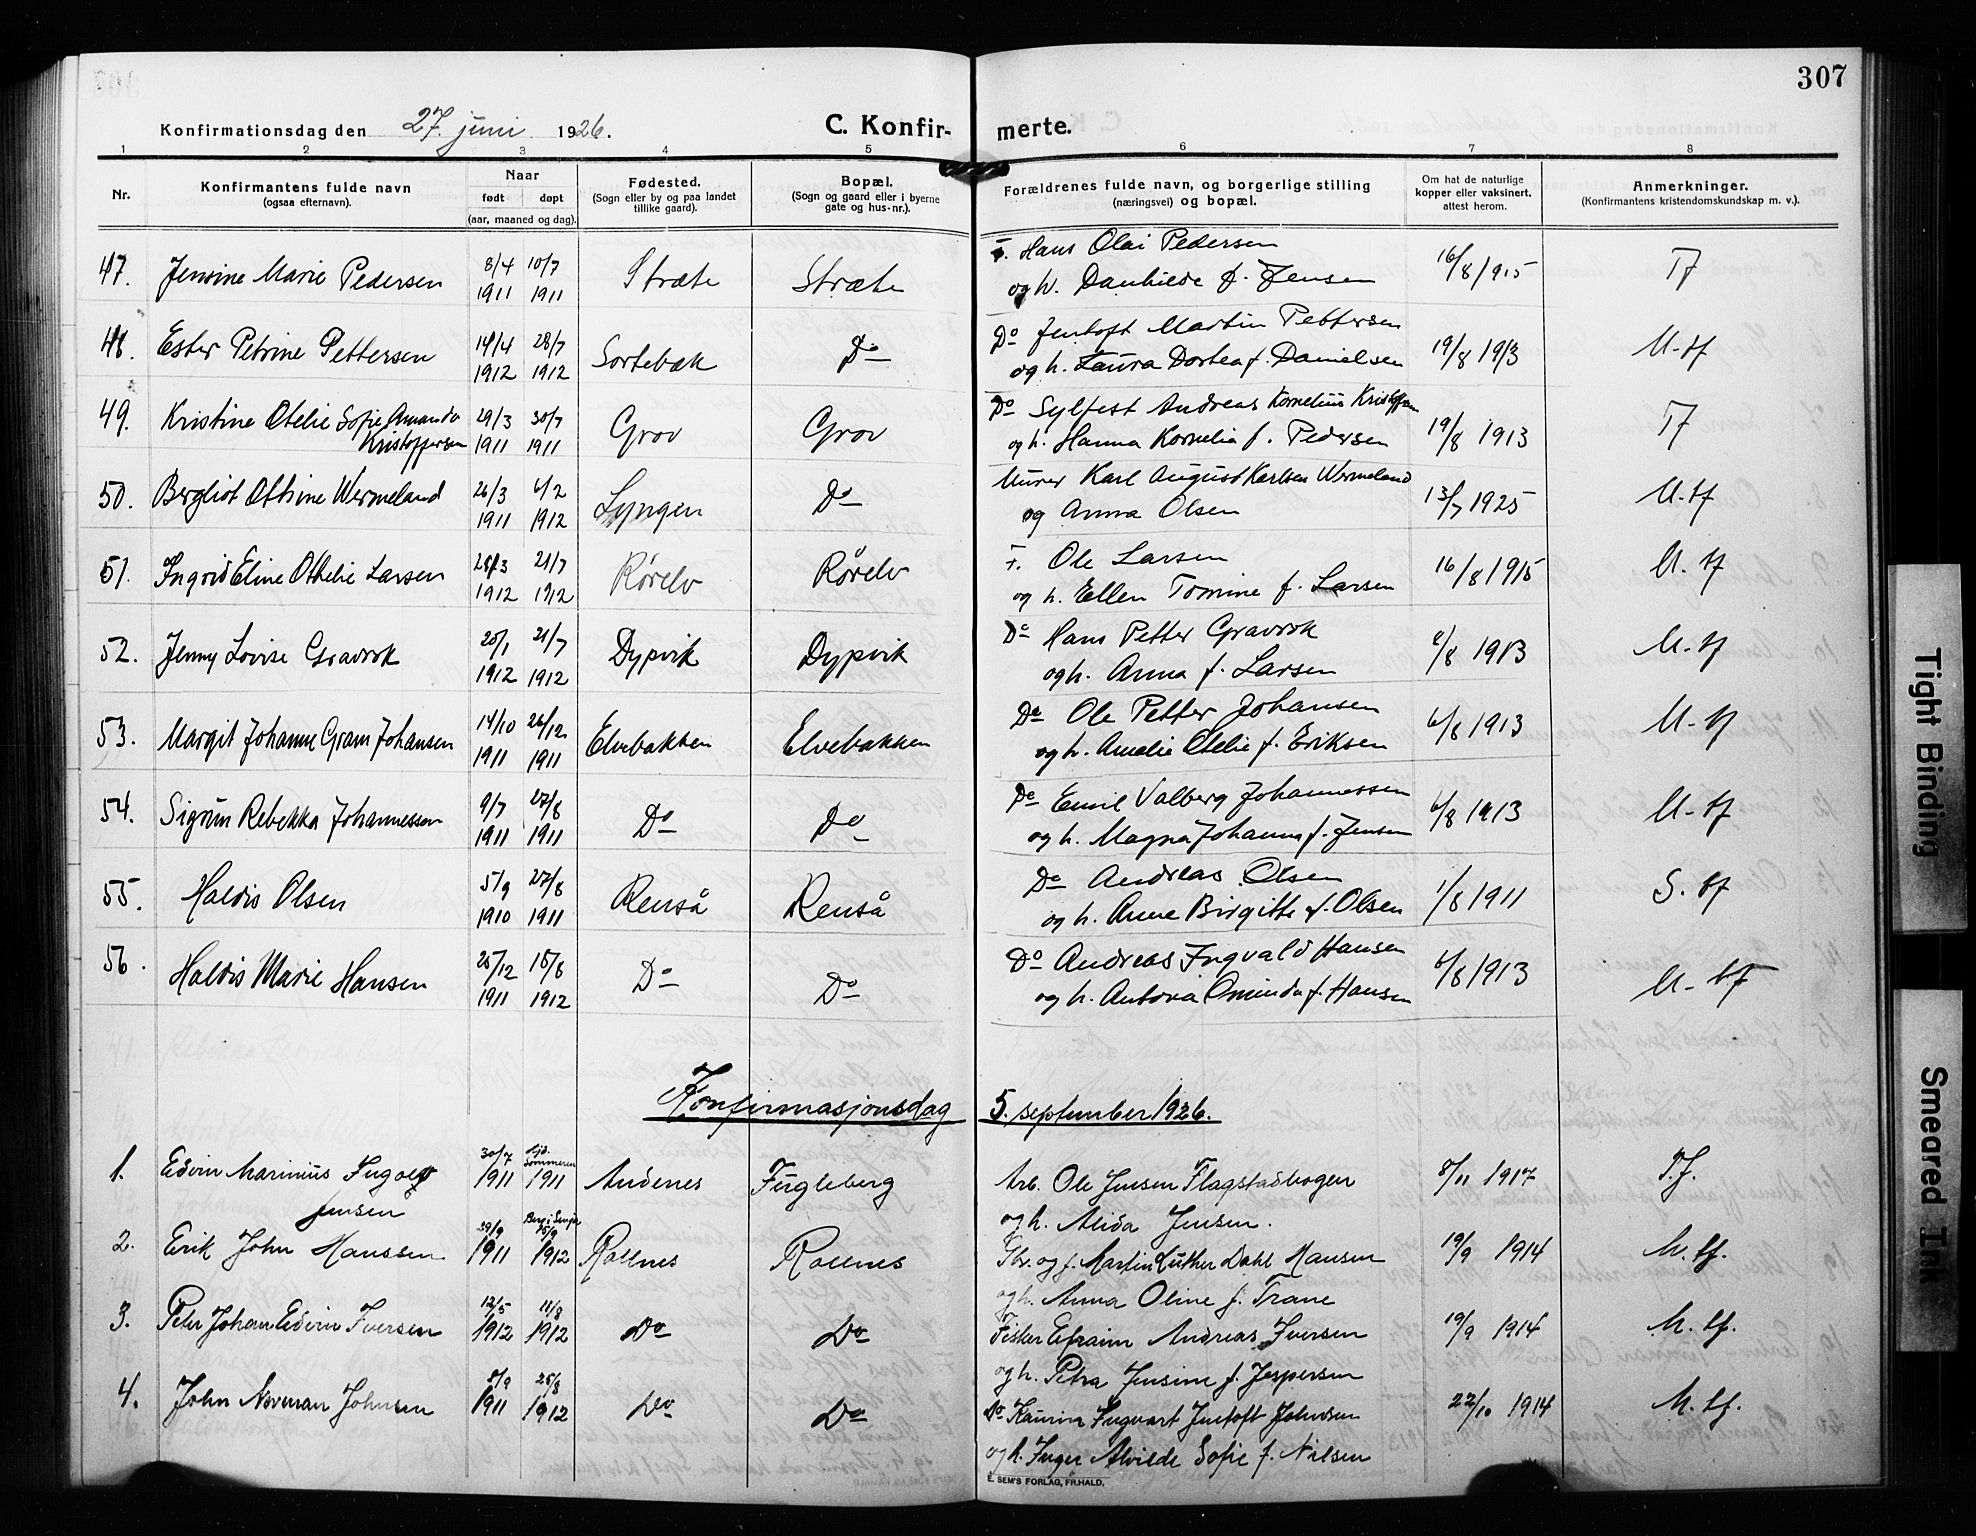 307
Konfirmationsdag den 27. juni 1926. C. Konfir- merte.
1 2 3 4 5 6 7 8
Nr. Konfirmantens fulde navn (ogsaa efternavn). Naar født døpt (aar, maaned og dag). Fødested. (Sogn eller by og paa landet tillike gaard). Bopæl. (Sogn og gaard eller i byerne gate og hus-nr.). Forældrenes fulde navn, og borgerlige stilling (næringsvei) og bopæl. Om hat de naturlige kopper eller vaksinert, attest herom. Anmerkninger. (Konfirmantens kristendomskundskap m. v.).
47. Jensine Marie Pedersen 8/4 1911 10/7 1911 Stræte Stræte F. Hans Olai Pedersen 16/8 1915 Tf
og h. Danhilde f. Jensen
48. Ester Petrine Pettersen 14/4 1912 28/7 1912 Sortebæk Do Do Jentoft Martin Pettersen 19/8 1913 M-tf
og h. Laura Dortea f. Danielsen
49. Kristine Otelie Sofie Amanda 29/3 1911 30/7 1911 Grov Grov Do Sylfest Andreas Kornelius Kristoffersen 19/8 1913 Tf
Kristoffersen og h. Hanna Kornelia f. Pedersen
50. Bergliot Othine Wermeland 26/3 1911 6/2 1912 Lyngen Do Murer Karl August Karlsen Wermeland 13/7 1925 M-tf
og Anna Olsen
51. Ingrid Eline Othelie Larsen 28/3 1912 21/7 1912 Rørelv Rørelv F. Ole Larsen 16/8 1915 M. tf
og h. Ellen Tomine f. Larsen
52. Jenny Lovise Gravrok 20/1 1912 21/7 1912 Dypvik Dypvik Do Hans Petter Gravrok 6/8 1913 M-tf
og h. Anna f. Larsen
53. Margit Johanne Gram Johansen 14/10 1911 26/12 1911 Elvebakken Elvebakken Do Ole Petter Johansen 6/8 1913 M-tf
og h. Amalie Otelie f. Eriksen
54. Sigrun Rebekka Johannessen 9/7 1911 27/8 1911 Do Do Do Emil Valberg Johannessen 6/8 1913 M-tf
og h. Magna Johanna f. Jensen
55. Haldis Olsen 5/9 1910 27/8 1911 Renså Renså Do Andreas Olsen 1/8 1911 S. tf
og h. Anne Birgitte f. Olsen
56. Haldis Marie Hansen 25/12 1911 18/8 1912 Do Do Do Andreas Ingvald Hansen 6/8 1913 M-tf
og h. Antora Ominda f. Hansen
Konfirmasjonsdag 5. september 1926.
1. Edvin Marinius Ingolf 30/7 1911 1911 Andenes Fugleberg Arb. Ole Jensen Flagstadbogen 8/11 1917 T.f.
Jensen og h. Alida Jensen.
2. Erik John Hanssen 29/9 1911 Berg i Senja 15/9 1912 Rollnes Rollnes Gbr. og f. Martin Luther Dahl Hansen 19/9 1914 M. tf.
og h. Anna Oline f. Trane
3. Peter Johan Edvin Iversen 12/5 1912 11/8 1912 Do Do Fisker Efraim Andreas Iversen 19/9 1914 M. tf.
og h. Petra Jensine f. Jespersen
4. John Norman Johnsen 8/9 1911 25/8 1912 Do Do Do Ingvart Jentoft Johnsen 22/10 1914 M. tf.
og h. Inger Alvilde Sofie f. Nilsen
E. SEM'S FORLAG, FR.HALD.
Tight Binding
Smeared Ink